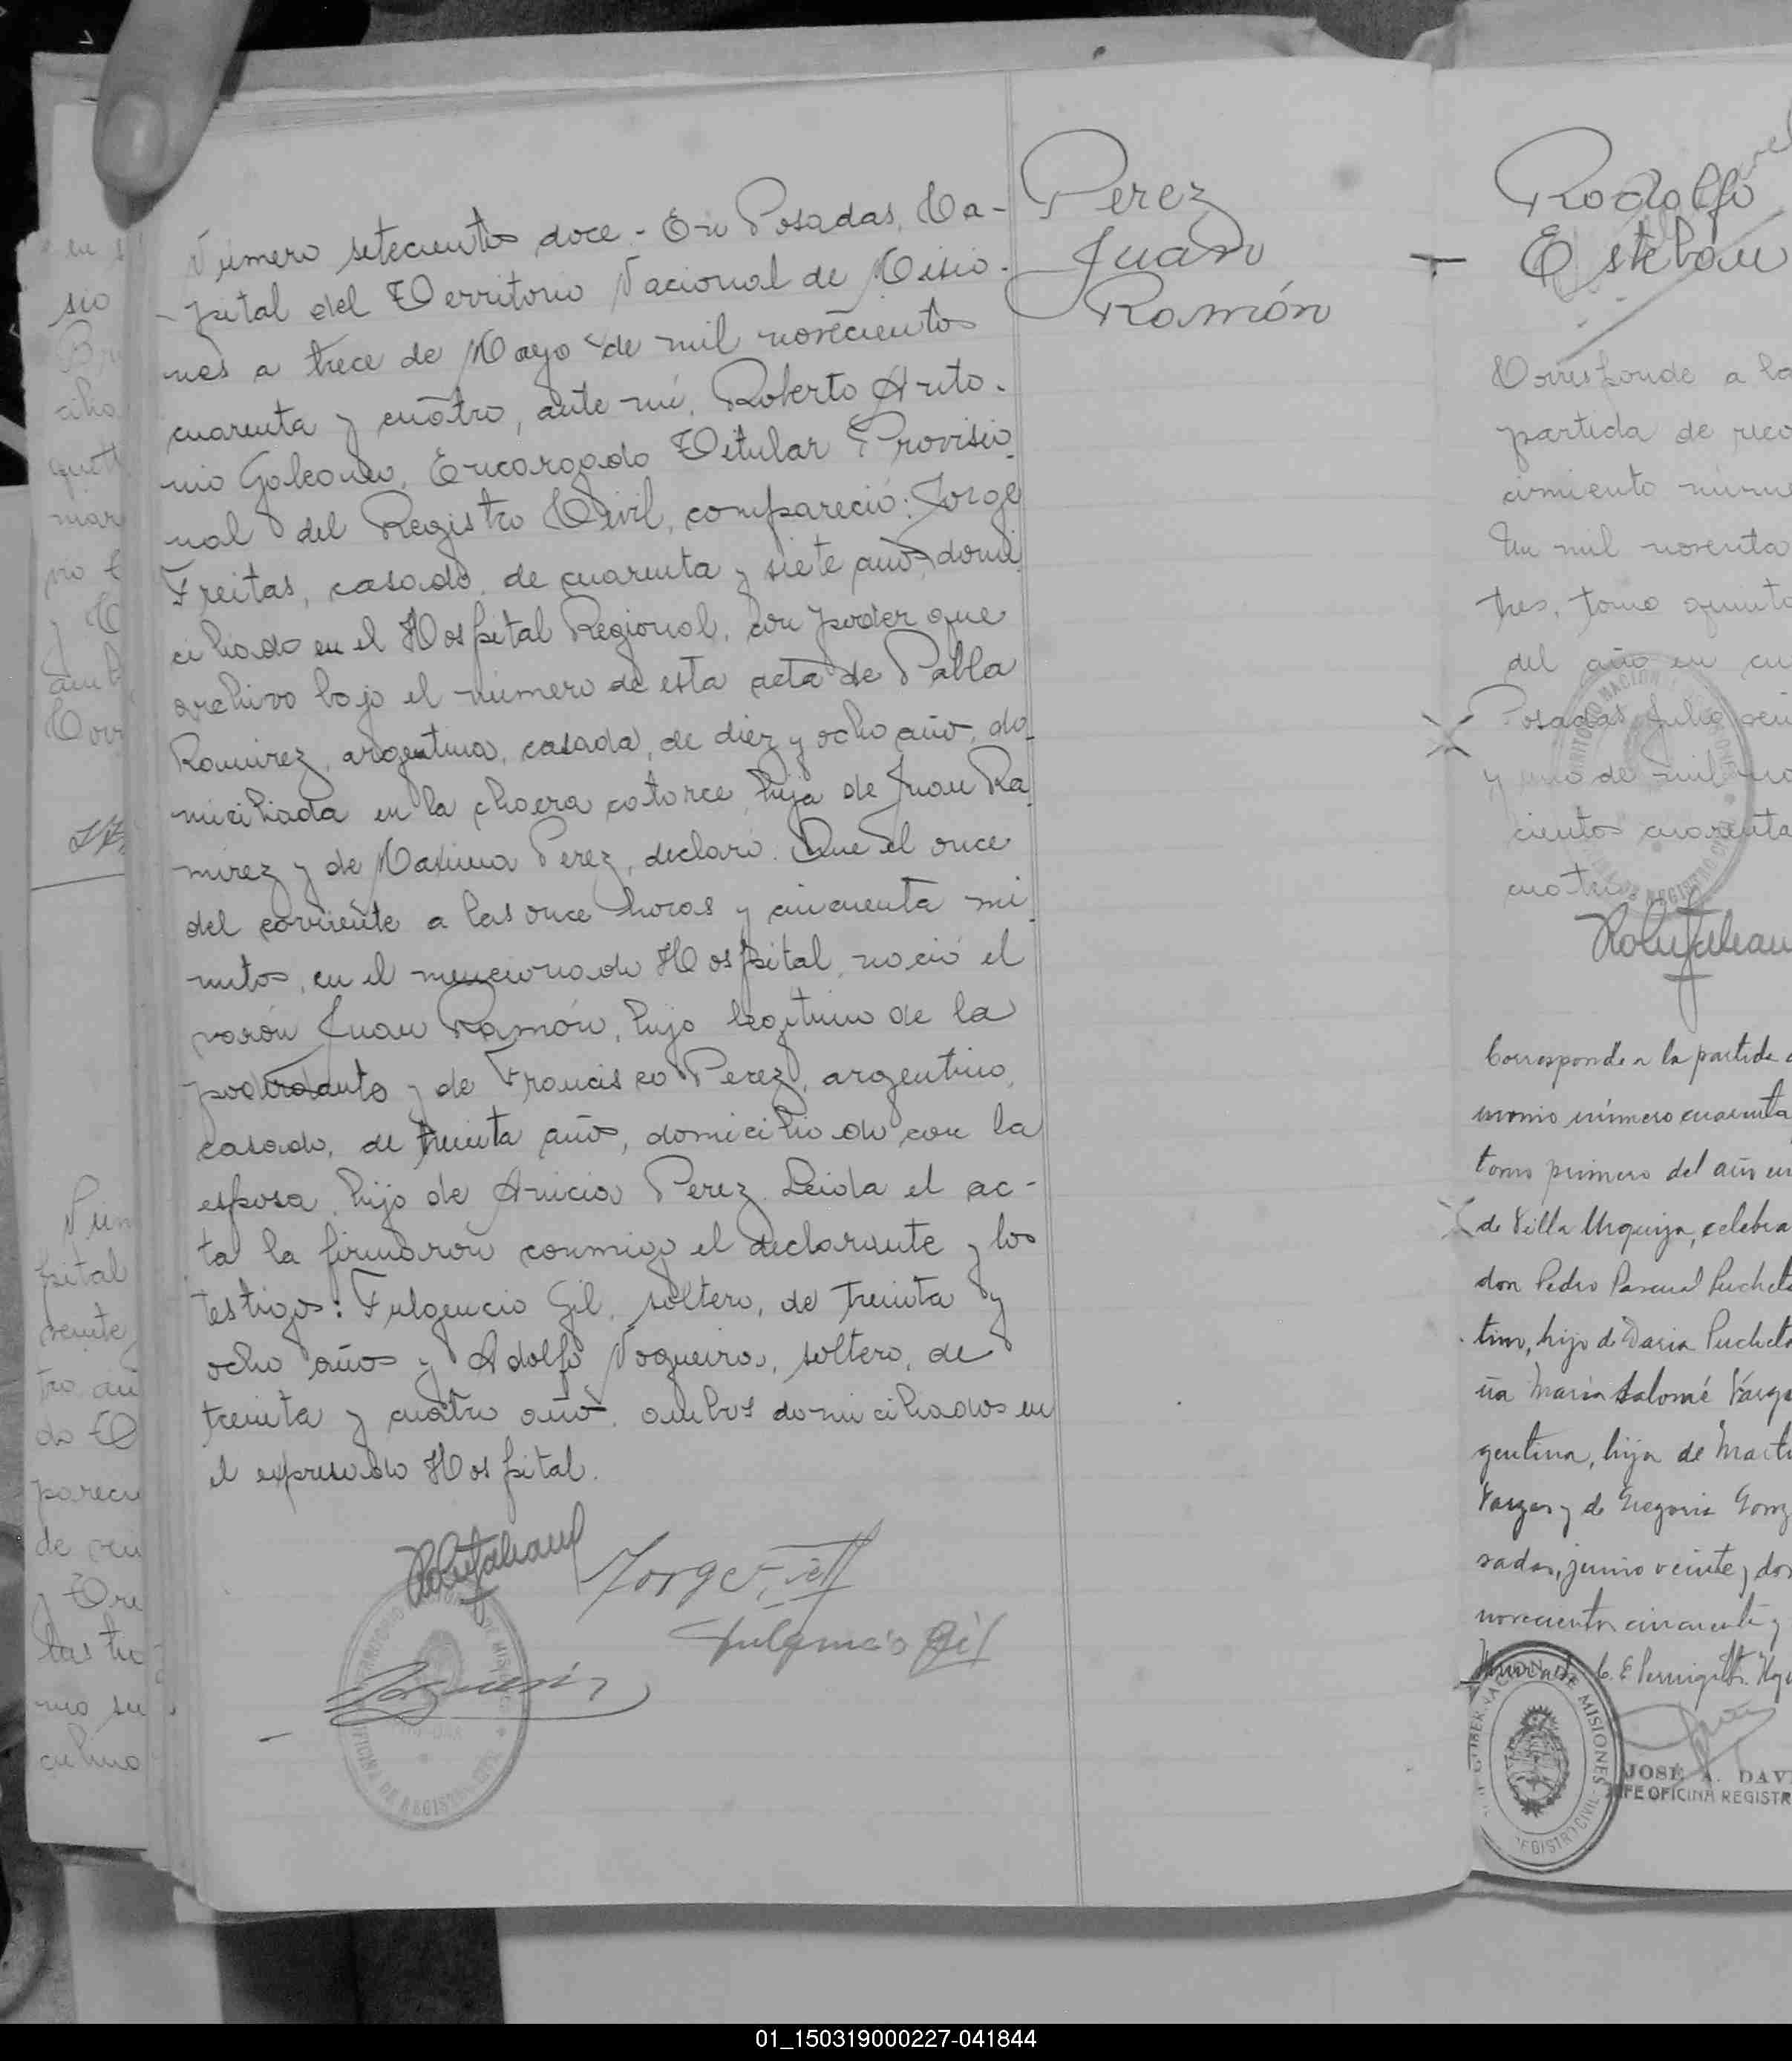 Número setecientos doce.- En Posadas, Ca-
pital del Territorio Nacional de Misio-
nes a trece de Mayo de mil novecientos
cuarenta y cuatro, ante mí, Roberto Anto-
nio Galeano, Encargado Titular Provisio-
nal del Registro Civil, compareció: Jorge
Freitas, casado, de cuarenta y siete años, domi
ciliado en el Hospital Regional, con poder que
archivo bajo el número de esta acta de Pabla
Ramirez, argentina, casada, de diez y ocho años, do-
miciliada en la chacra catorce, hija de Juan Ra-
mirez y de Maxima Perez, declaró: Que el once
del corriente a las once horas y cincuenta mi-
nutos, en el mencionado Hospital, nació el
varón Juan Ramón, hijo legitimo de la
poderdante y de Francisco Perez, argentino,
casado, de treinta años, domiciliado con la
esposa, hijo de Anicia Perez. Leida el ac-
ta la firmaron conmigo el declarante y los
testigos: Fulgencio Gil, soltero, de treinta y
ocho años y Adolfo Nogueira, soltero, de
treinta y cuatro años, ambos domiciliados en
el expresado Hospital.
Fulgencio Gil
Perez
Juan
Ramón
Rodolfo
Esteban
Corresponde a la
partida de reco
cimiento núme
Un mil noventa
tres, tomo quinto
del año en cu
Posadas, Julio vein
y uno de mil no
cientos cuarenta
cuatro
Corresponde a la partida
monio número cuarenta
tomo primero del año en
de Villa Urquiza, celebra
don Pedro Pascual Puchet
tino, hijo de Daria Puchet
ña María Salomé Varg
gentina, hija de Mart
Vargas y de Gregoria Gonz
sadas, junio veinte y dos
novecientos cincuenta y
GOBERNACION DE MISIONES
REGISTRO CIVIL
JOSÉ A. DAV
JEFE OFICINA REGISTR
01_150319000227-041844